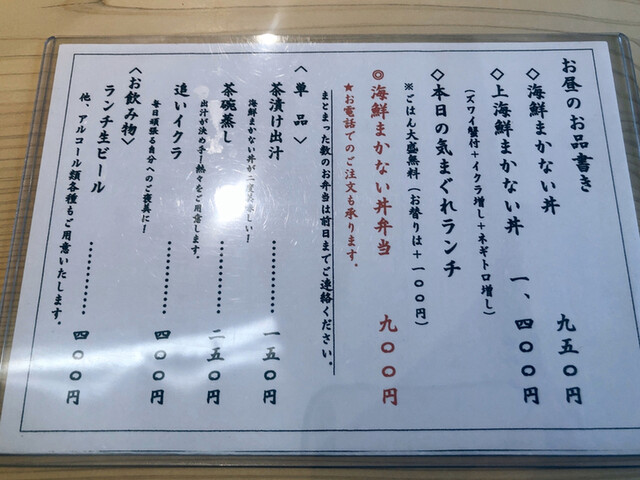 お昼のお品書き
◇海鮮まかない丼 九五〇円
◇上海鮮まかない丼 一、四〇〇円
(ズワイ蟹付+イクラ増し+ネギトロ増し)
◇本日の気まぐれランチ
※ごはん大盛無料(お替りは+一〇〇円)
◎海鮮まかない丼弁当 九〇〇円
★お電話でのご注文も承ります。
まとまった数のお弁当は前日までご連絡ください。
〈単品〉
茶漬け出汁 ………… 一五〇円
海鮮まかない丼が二度美味しい!
茶碗蒸し ………… 二五〇円
出汁が決め手!熱々をご用意します。
追いイクラ ………… 四〇〇円
毎日頑張る自分へのご褒美に!
〈お飲み物〉
ランチ生ビール ………… 四〇〇円
他、アルコール類各種もご用意いたします。